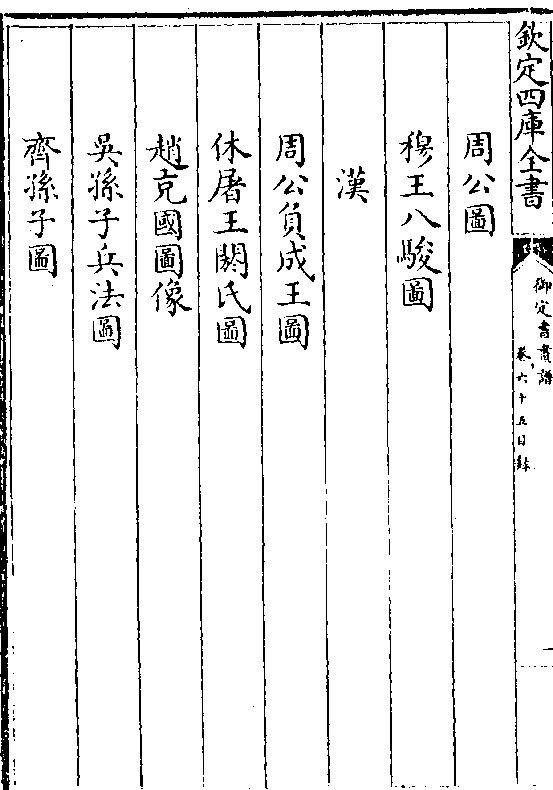 欽定四庫全書
御定書畫譜
卷六十五目錄
一
周公圖
穆王八駿圖
漢
周公負成王圖
休屠王閼氏圖
趙充國圖像
吳孫子兵法圖
齊孫子圖